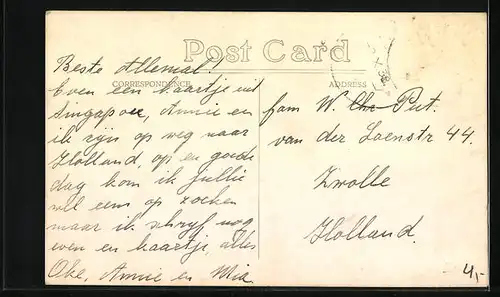 Post Card
CORRESPONDENCE
ADDRESS
Beste Allemal!
Even een kaartje uit
Singapore, Annie en
ik zijn op weg naar
Holland, op en goede
dag kom ik jullie
wel eens op zoeken
maar ik schryf nog
even en kaartje, alles
Oke, Annie en Mia
fam W. Put.
van der Laenstr 44.
Zwolle
Holland.
4,-